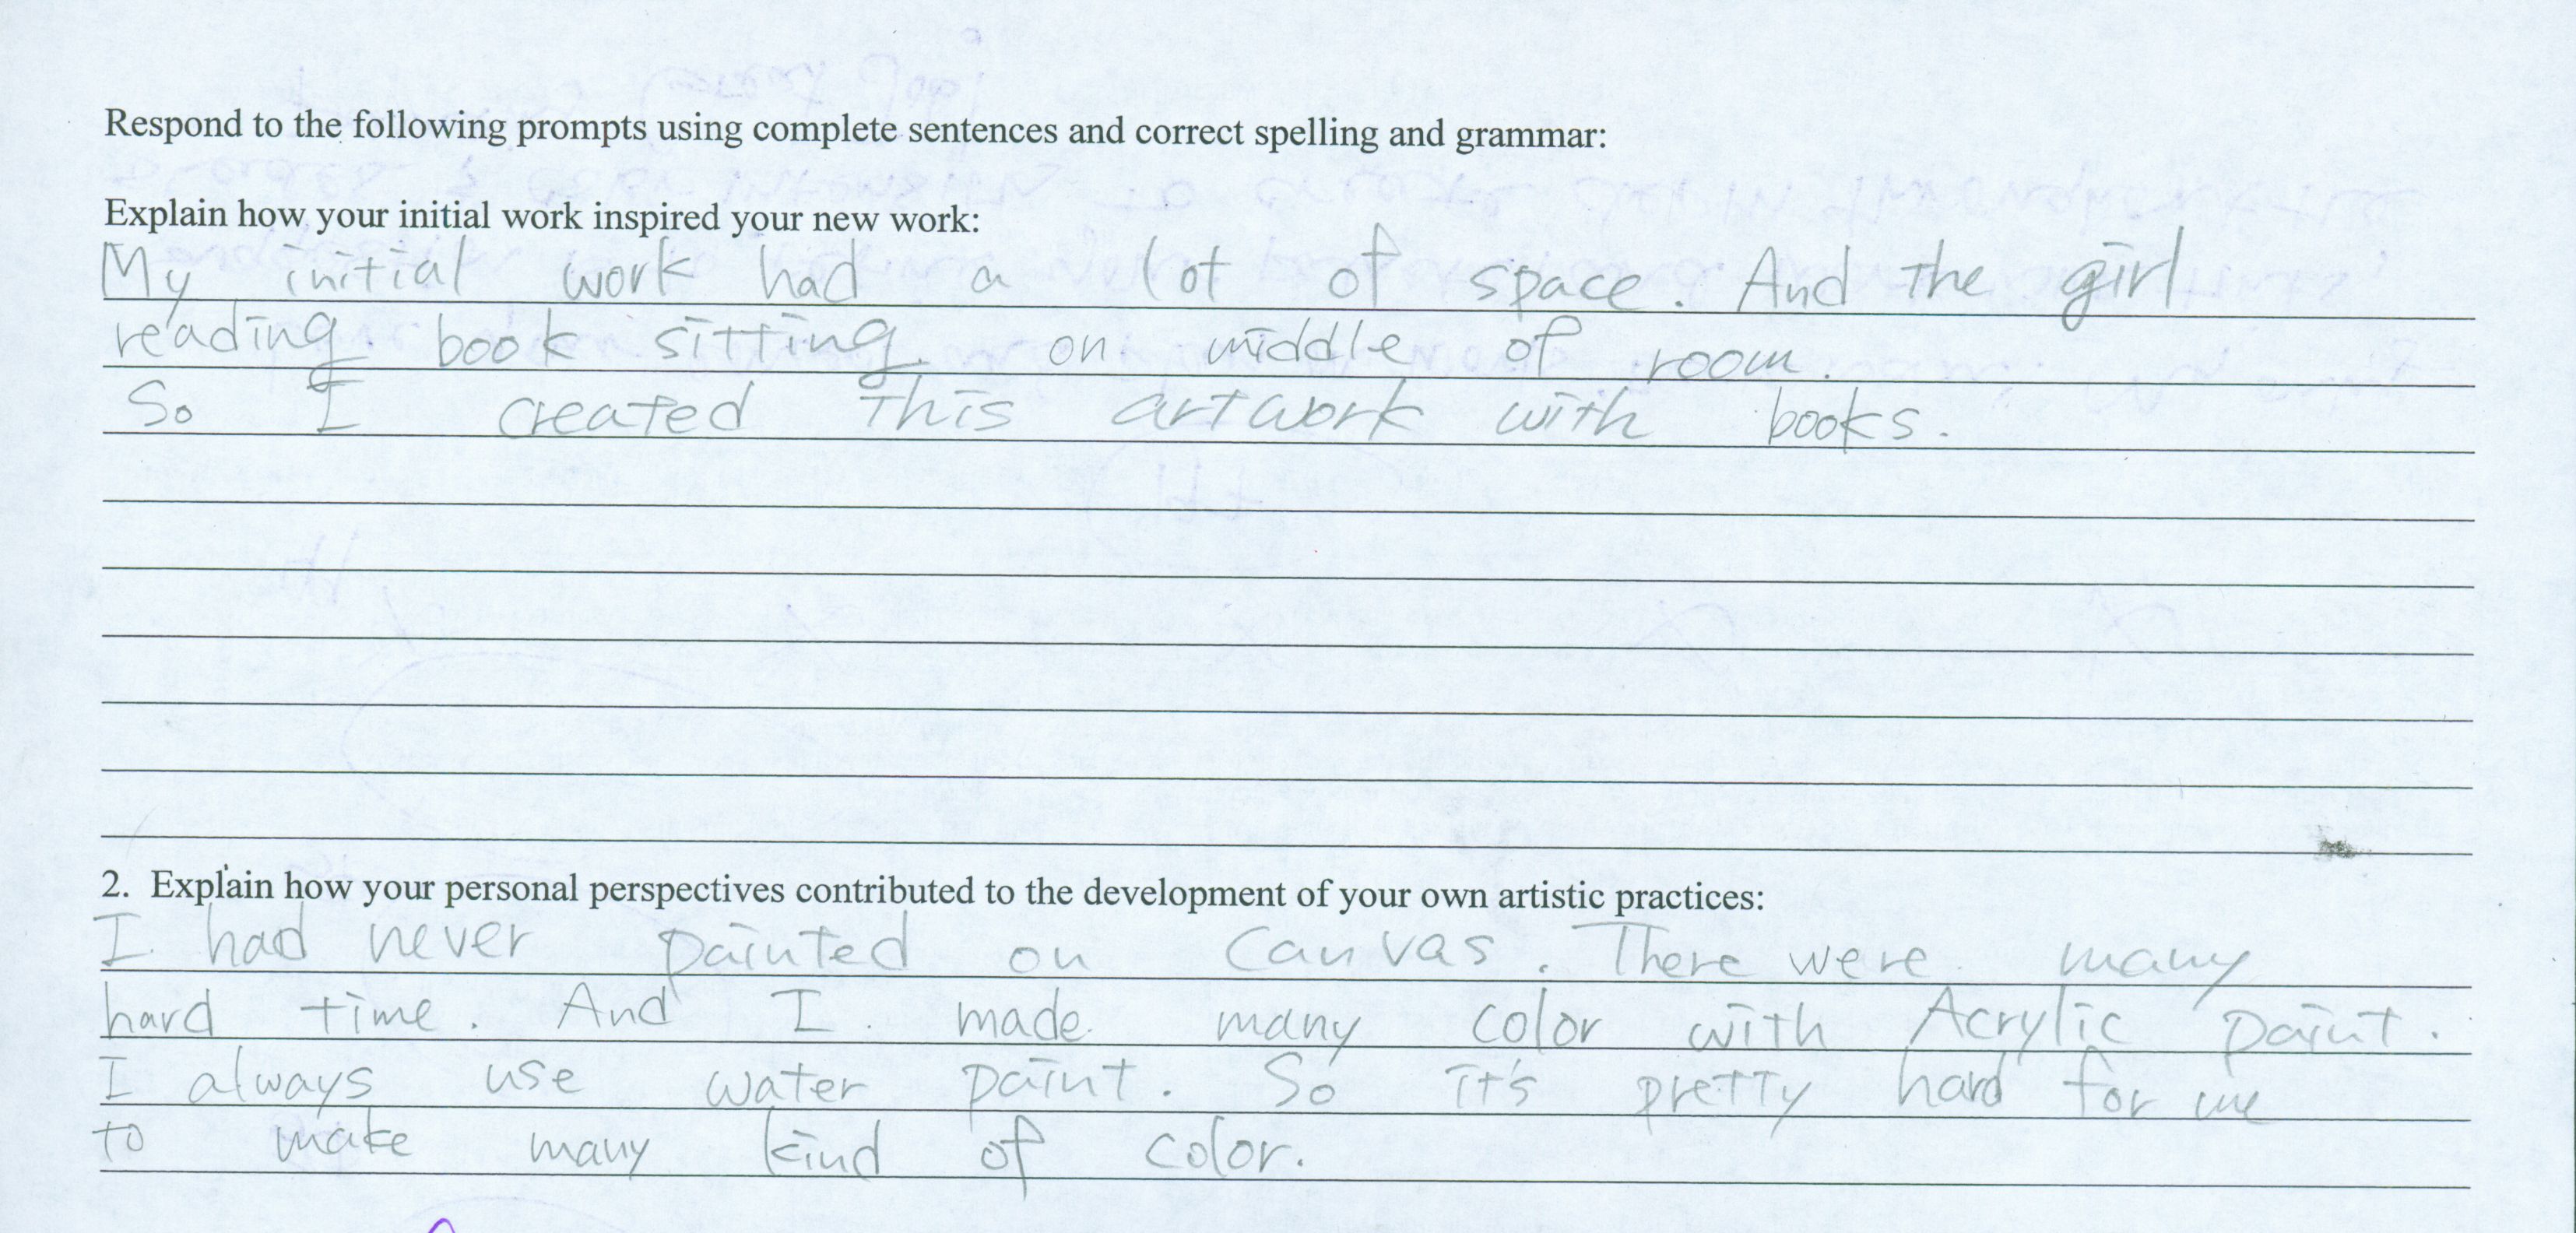 Respond to the following prompts using complete sentences and correct spelling and grammar:
Explain how your initial work inspired your new work:
My initial work had a lot of space. And the girl
reading book sitting on middle of room.
So I created this artwork with books.
2. Explain how your personal perspectives contributed to the development of your own artistic practices:
I had never painted on canvas. There were many
hard time. And I made many color with Acrylic paint.
I always use water paint. So it's pretty hard for me
to make many kind of color.